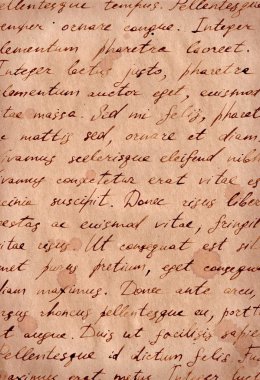 ellentesque tempus. Pellentesque
emper ornare congue. Integer
lementum pharetra laoreet.
Integer lectus justo, pharetra
lementum auctor eget, euismod
itae massa. Sed mi felis, pharet
c mattis sed, ornare et diam.
ivamus scelerisque eleifend nibh
ivamus consectetur erat vitae es
acinia suscipit. Donec risus libe
gestas ac euismod vitae, fringill
itae risus. Ut consequat est sit
met purus pretium, eget consequa
diam maximus. Donec ante arcu,
rsus rhoncus pellentesque eu, port
t augue. Duis ut facilisis sapie
Pellentesque id dictum felis. Fus
maximus erat